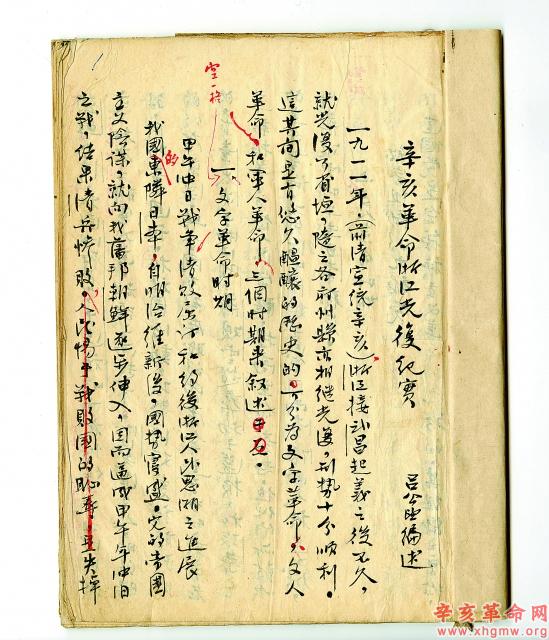 辛亥革命浙江光復紀實
吕公望編述
一九一一年,(前清宣統辛亥)浙江接武昌起義之後不久,
就光復了省垣,隨之各府州縣亦相繼光復,形勢十分順利。
這其間是有悠久醞釀的歷史的,可分爲文字革命,文人
革命,和軍人革命,三個時期來叙述
空一格
一、文字革命時期
甲午中日戰爭清敗屈訂和約後浙江人民思潮之進展
我國的東隣日本,自明治維新後,國勢富盛,它的帝國
主义陰謀,就向我藩邦朝鮮逐步伸入,因而逼成甲午年中日
之戰,結果清兵慘敗,人民惕于戰敗國的恥辱,且失掉
1
辛亥革命网
www.xhgmw.org